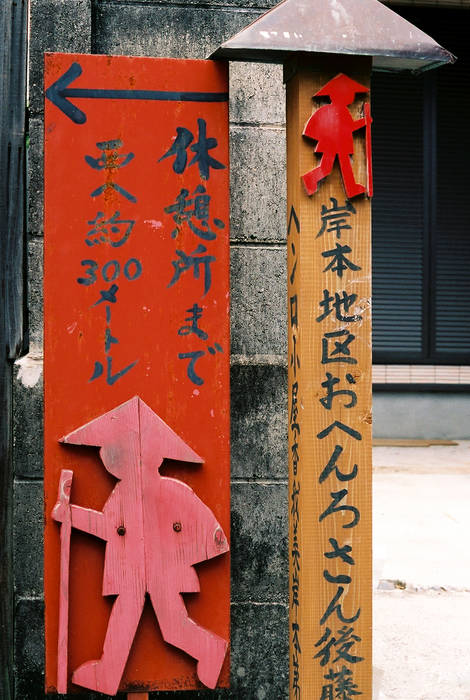 休憩所まで
西へ約
300メートル
岸本地区おへんろさん後藤
ヘンロ小屋